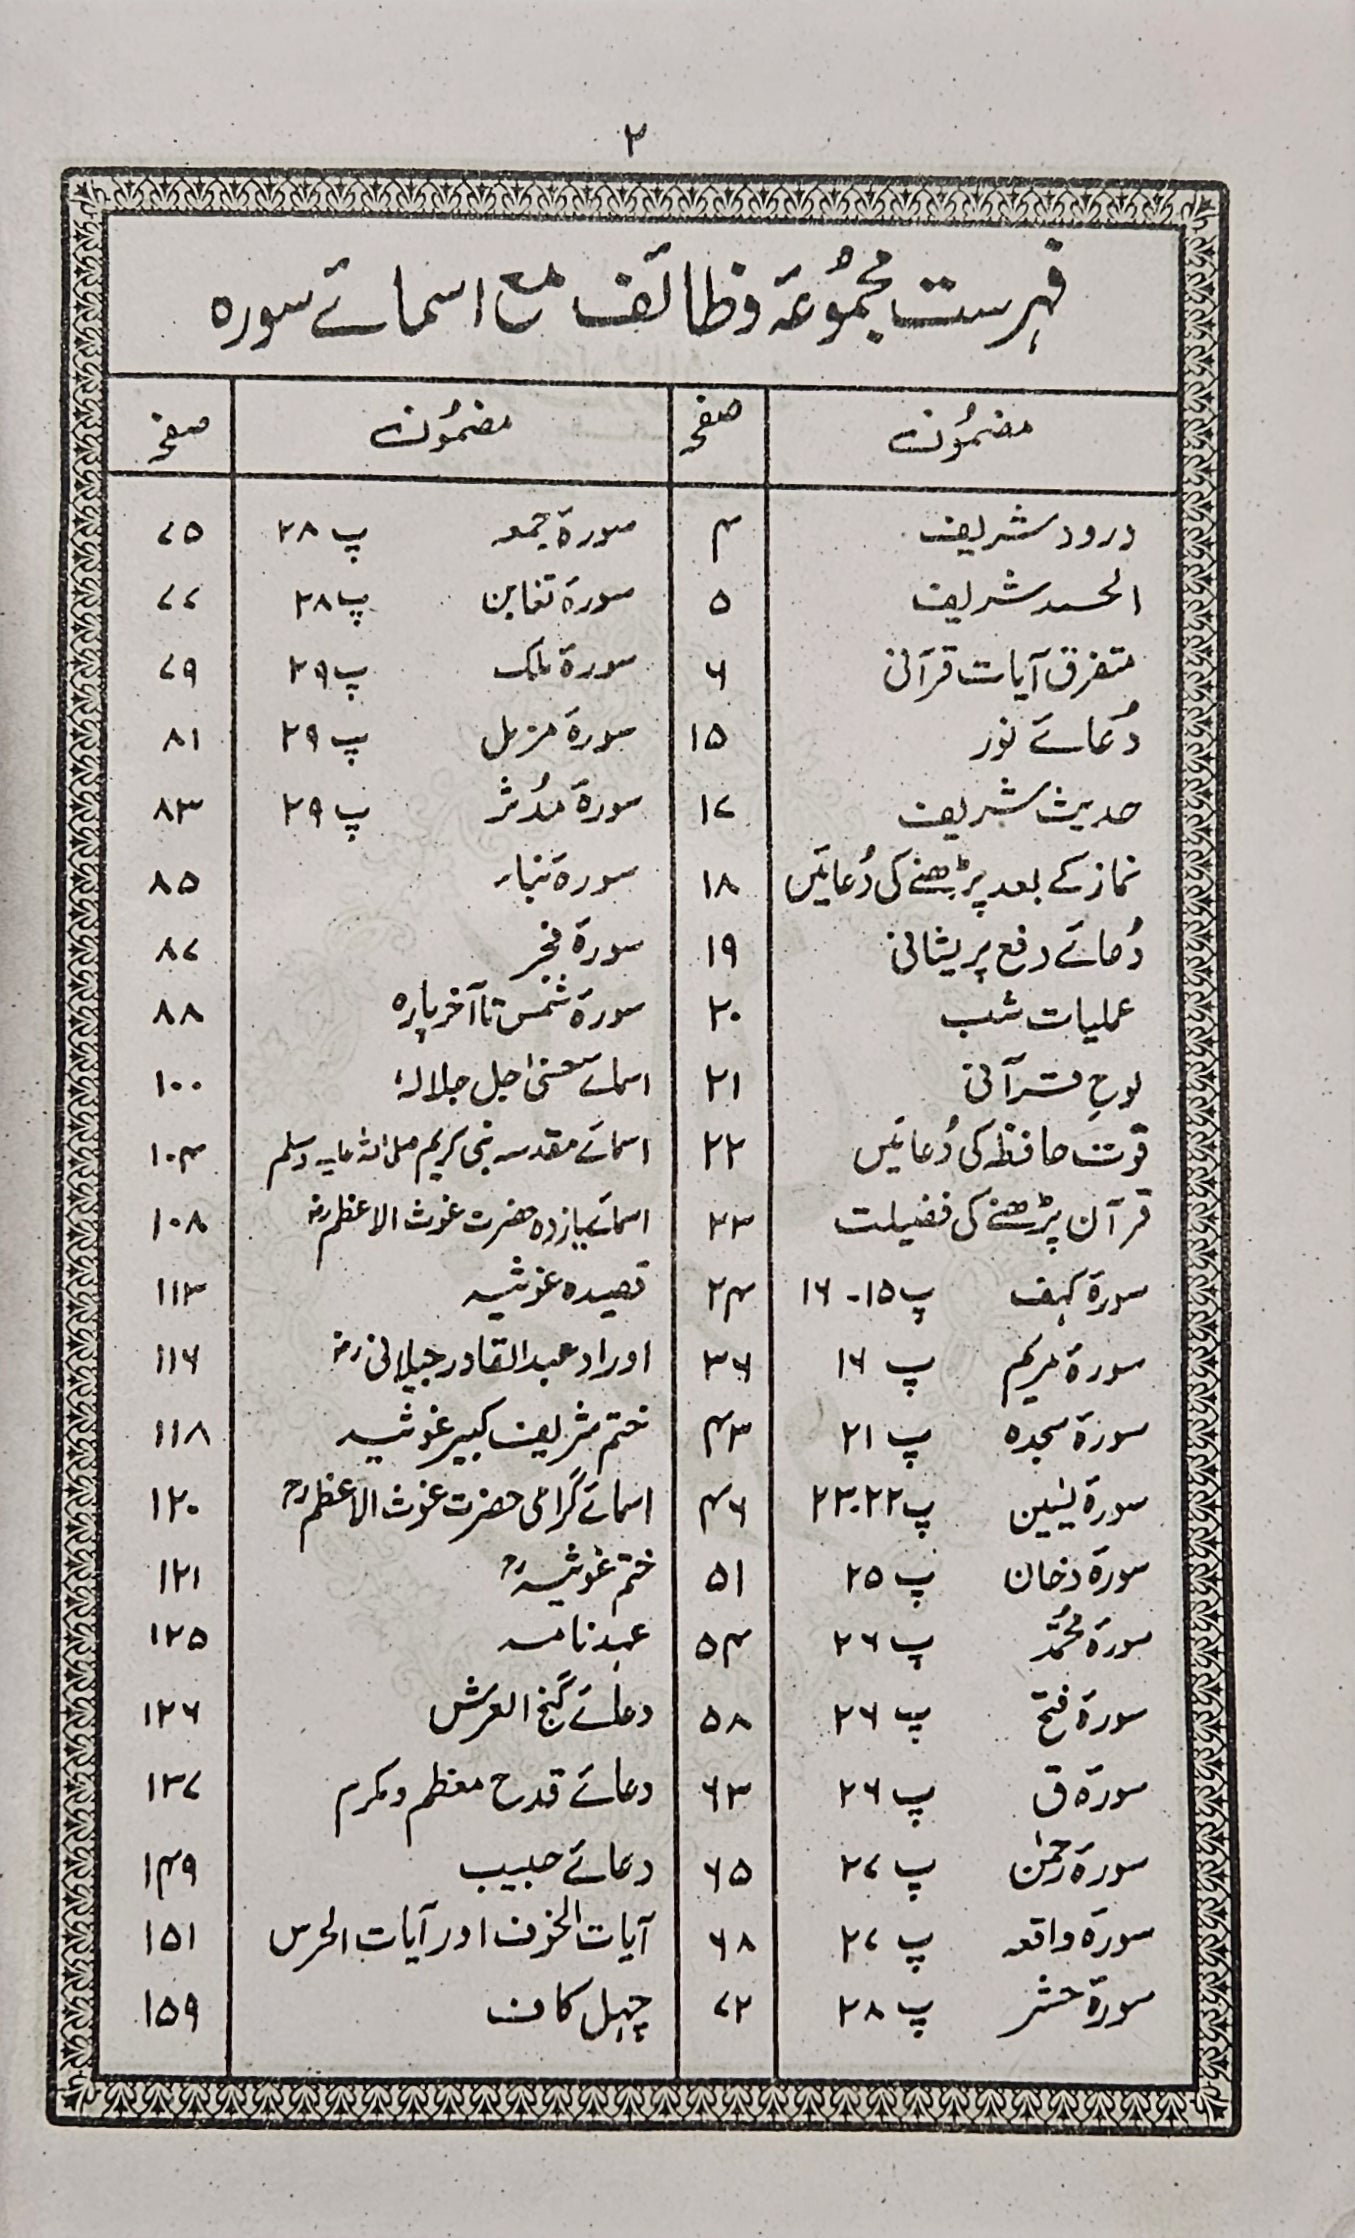 ۲
فہرست مجموعہ وظائف مع اسمائے سورہ
مضمون صفحہ
درود شریف ۴
الحمد شریف ۵
متفرق آیات قرآنی ۶
دُعائے نور ۱۵
حدیث شریف ۱۷
نماز کے بعد پڑھنے کی دُعائیں ۱۸
دُعائے دفع پریشانی ۱۹
عملیات شب ۲۰
لوحِ قرآنی ۲۱
قوت حافظہ کی دُعائیں ۲۲
قرآن پڑھنے کی فضیلت ۲۳
سورۃ کہف پ ۱۵-۱۶ ۲۴
سورۃ مریم پ ۱۶ ۳۶
سورۃ سجدہ پ ۲۱ ۴۳
سورۃ یٰسین پ ۲۲-۲۳ ۴۶
سورۃ دخان پ ۲۵ ۵۱
سورۃ محمّد پ ۲۶ ۵۴
سورۃ فتح پ ۲۶ ۵۸
سورۃ ق پ ۲۶ ۶۳
سورۃ رحمٰن پ ۲۷ ۶۵
سورۃ واقعہ پ ۲۷ ۶۸
سورۃ حشر پ ۲۸ ۷۲
مضمون صفحہ
سورۃ جمعہ پ ۲۸ ۷۵
سورۃ تغابن پ ۲۸ ۷۷
سورۃ ملک پ ۲۹ ۷۹
سورۃ مزمل پ ۲۹ ۸۱
سورۃ مدُثر پ ۲۹ ۸۳
سورۃ نباء ۸۵
سورۃ فجر ۸۷
سورۃ شمس تا آخر پارہ ۸۸
اسمائے حسنیٰ جل جلالہٗ ۱۰۰
اسمائے مقدسہ نبی کریم صلی اللہ علیہ وسلم ۱۰۴
اسمائے یازدہ حضرت غوث الاعظم رض ۱۰۸
قصیدہ غوثیہ ۱۱۳
اوراد عبدالقادر جیلانی رض ۱۱۶
ختم شریف کبیر غوثیہ ۱۱۸
اسمائے گرامی حضرت غوث الاعظم رح ۱۲۰
ختم غوثیہ رح ۱۲۱
عہد نامہ ۱۲۵
دعائے گنج العرش ۱۲۶
دعائے قدح معظم و مکرم ۱۳۷
دعائے حبیب ۱۴۹
آیات الخوف اور آیات الحرس ۱۵۱
چہل کاف ۱۵۹